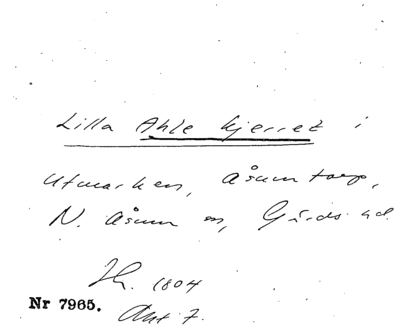 Lilla Ahle kjerret i
utmarken, Åsumtorp,
N. Åsum sn, Gärds hd.
Sk. 1804
Nr 7965.
Akt 7.